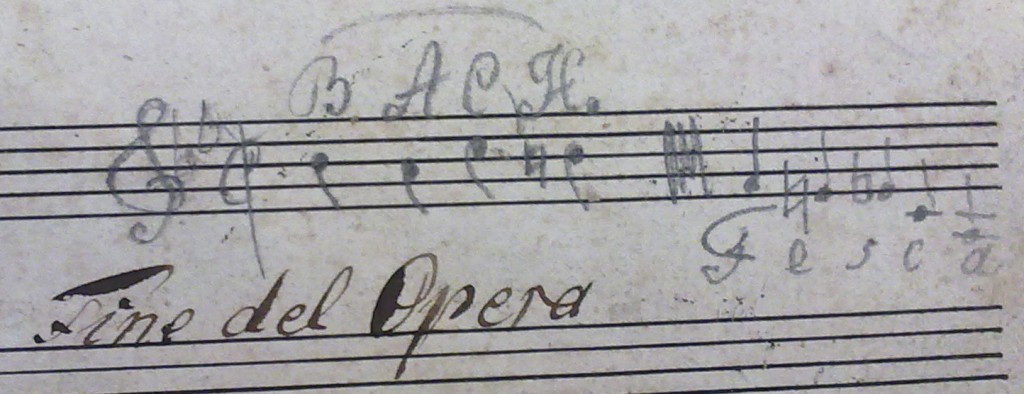 B. A C H.
F e s c a
Fine del Opera